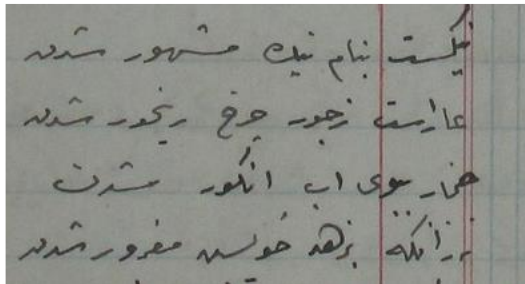 نیکست بنام نیک مشهور شدن
عارست زجور چرخ رنجور شدن
خمار ببوی اب انگور شدن
به زانکه بزهد خویش مغرور شدن